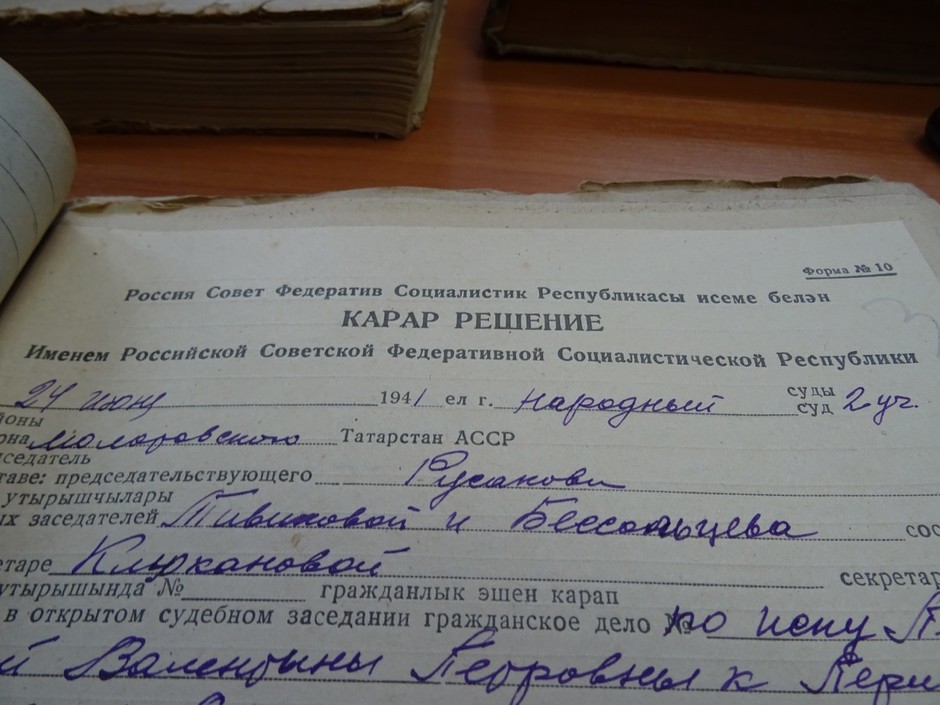 Форма № 10
Россия Совет Федератив Социалистик Республикасы исеме белән
КАРАР РЕШЕНИЕ
Именем Российской Советской Федеративной Социалистической Республики
24 июня 1941 ел г. Народный суды суд 2 уч.
оны
она Молотовского Татарстан АССР
седатель
таве: председательствующего Русакова
утырышчылары
ых заседателей и Бессольцева сос
етаре Клюкановой секретар
утырышында № гражданлык эшен карап
в открытом судебном заседании гражданское дело № по иску П
й Валентины Петровны к